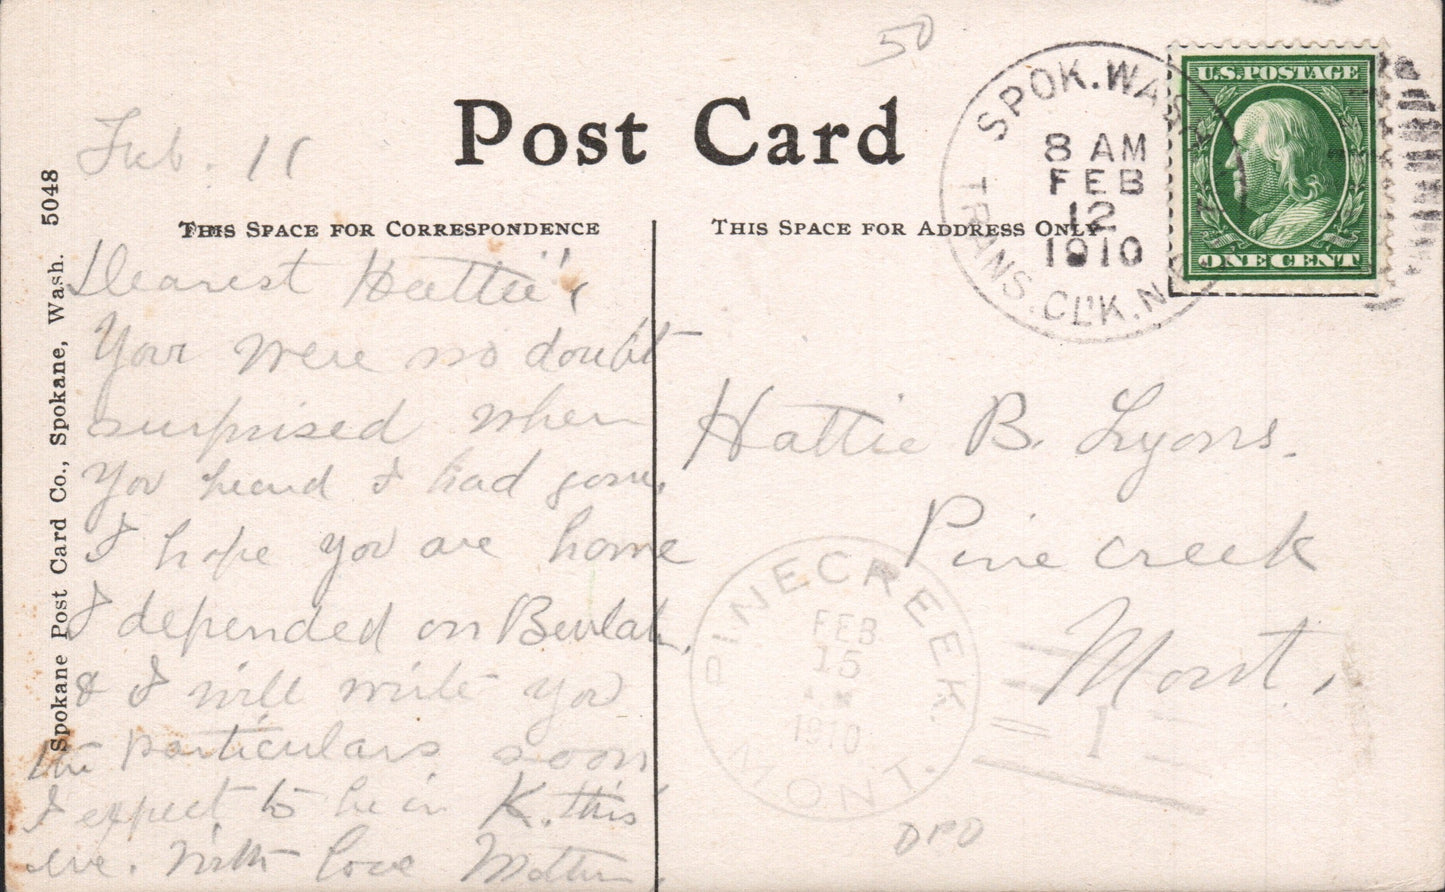 50
Post Card
THIS SPACE FOR CORRESPONDENCE
THIS SPACE FOR ADDRESS ONLY
5048
Spokane Post Card Co., Spokane, Wash.
SPOK. WASH
8 AM
FEB
12
1910
TRANS. CL'K. N
U.S. POSTAGE
ONE CENT
Feb. 11
Dearest Hattie",
Your were no doubt
surprised when
You heard I had gone.
I hope you are home
I depended on Beulah.
& I will write you
the particulars soon
I expect to be in K. this
eve. With love Mother.
Hattie B. Lyons.
Pine creek
Mont.
PINECREEK.
FEB
15
A.M.
1910
MONT.
1
DPO